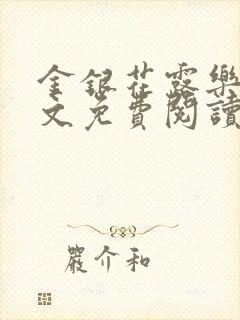 金銀花露樂
文免費閱讀
嚴介和